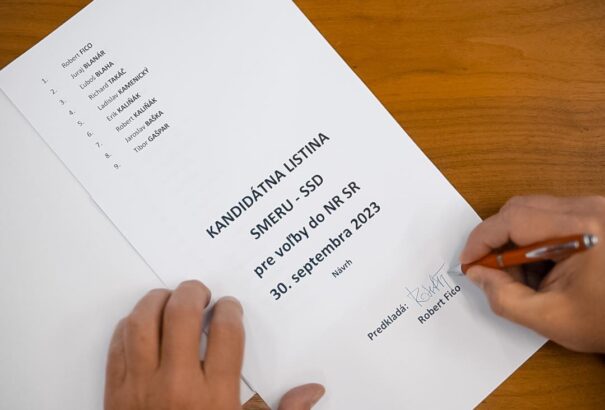 1. Robert FICO
2. Juraj BLANÁR
3. Ľuboš BLAHA
4. Richard TAKÁČ
5. Ladislav KAMENICKÝ
6. Erik KALIŇÁK
7. Robert KALIŇÁK
8. Jaroslav BAŠKA
9. Tibor GAŠPAR
KANDIDÁTNA LISTINA
SMERU - SSD
pre voľby do NR SR
30. septembra 2023
Návrh
Predkladá:
Robert Fico